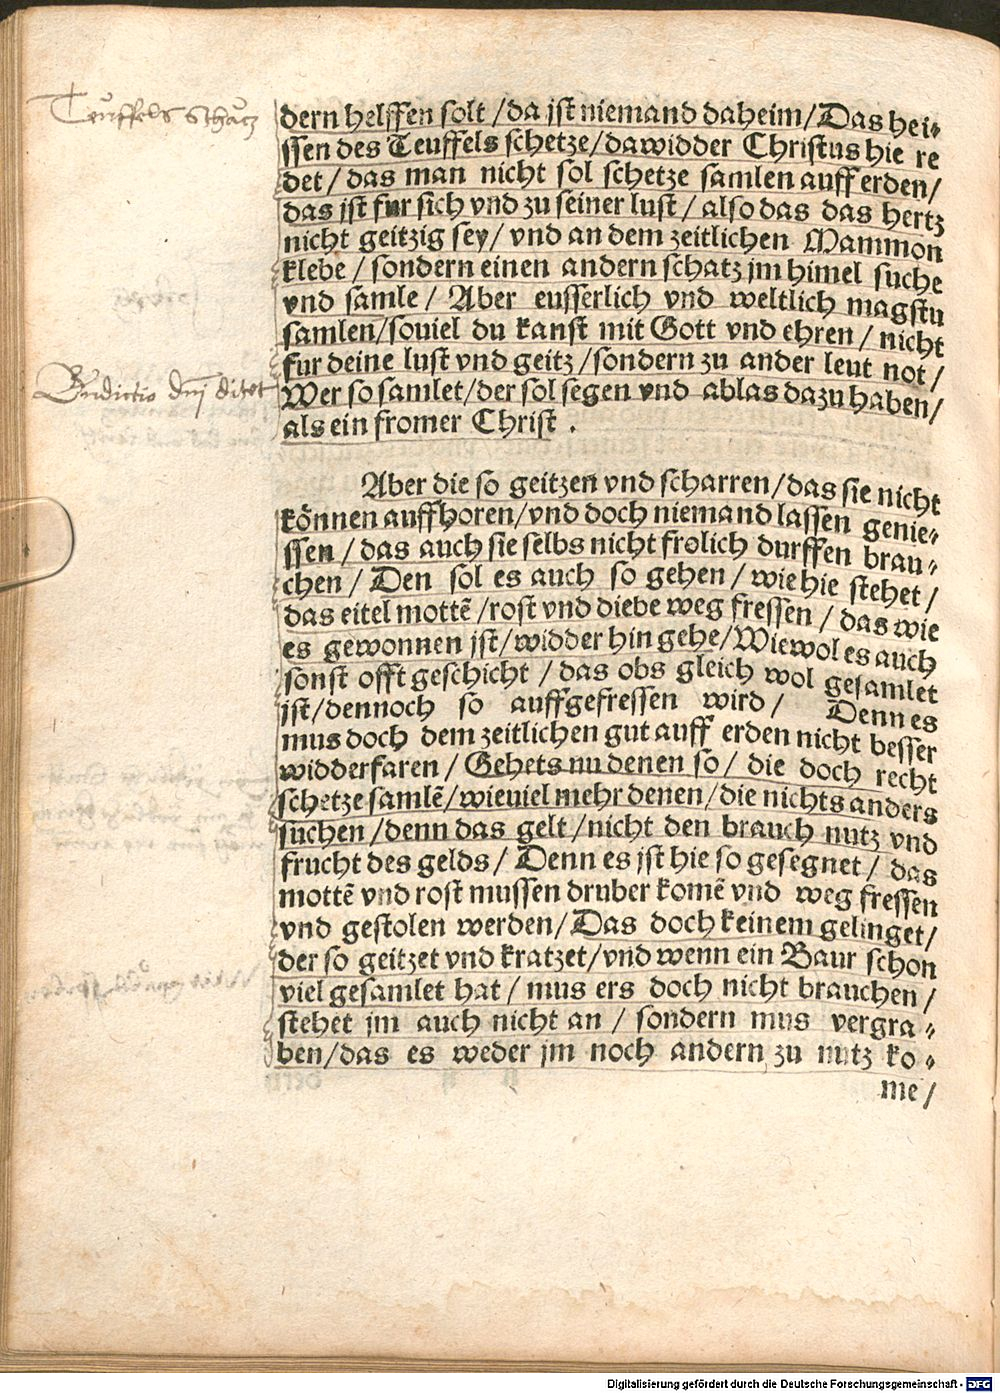 Teuffels Schatz
dern helffen solt /da jst niemand daheim/Das hei⸗
ssen des Teuffels schetze/dawidder Christus hie re
det/ das man nicht sol schetze samlen auff erden/
das jst fur sich vnd zu seiner lust / also das das hertz
nicht geitzig sey/ vnd an dem zeitlichen Mammon
klebe / sondern einen andern schatz jm himel suche
vnd samle / Aber eusserlich vnd weltlich magstu
samlen/souiel du kanst mit Gott vnd ehren / nicht
fur deine lust vnd geitz /sondern zu ander leut not /
Wer so samlet/der sol segen vnd ablas dazu haben/
als ein fromer Christ .
Aber die so geitzen vnd scharren/das sie nicht
können auffhoren/vnd doch niemand lassen genie⸗
ssen / das auch sie selbs nicht frolich durffen brau⸗
chen / Den sol es auch so gehen / wie hie stehet /
das eitel mottē /rost vnd diebe weg fressen / das wie
es gewonnen jst/widder hin gehe/Wiewol es auch
sonst offt geschicht / das obs gleich wol gesamlet
jst/dennoch so auffgefressen wird / Denn es
mus doch dem zeitlichen gut auff erden nicht besser
widderfaren / Gehets nu denen so/ die doch recht
schetze samlē/wieuiel mehr denen/die nichts anders
suchen /denn das gelt/nicht den brauch nutz vnd
frucht des gelds/ Denn es jst hie so gesegnet/ das
mottē vnd rost mussen druber komē vnd weg fressen
vnd gestolen werden/Das doch keinem gelinget/
der so geitzet vnd kratzet/vnd wenn ein Baur schon
viel gesamlet hat / mus ers doch nicht brauchen /
stehet jm auch nicht an / sondern mus vergra⸗
ben/das es weder jm noch andern zu nutz ko⸗
me /
Digitalisierung gefördert durch die Deutsche Forschungsgemeinschaft - DFG